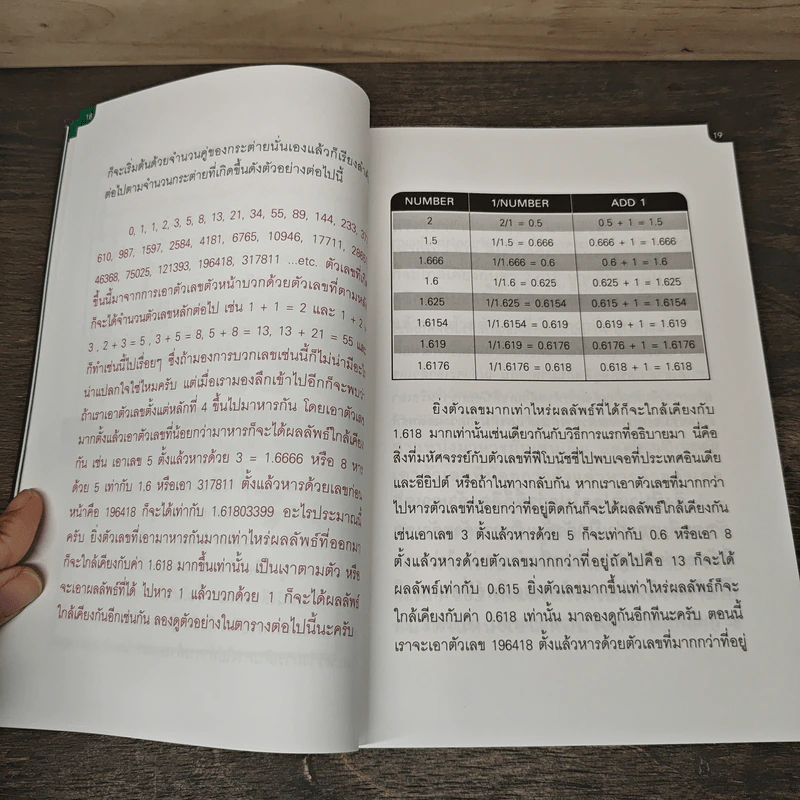 18
ก็จะเริ่มต้นด้วยจำนวนคู่ของกระต่ายนั่นเองแล้วก็เรียงลำดับ
ต่อไปตามจำนวนกระต่ายที่เกิดขึ้นดังตัวอย่างต่อไปนี้
0, 1, 1, 2, 3, 5, 8, 13, 21, 34, 55, 89, 144, 233,
610, 987, 1597, 2584, 4181, 6765, 10946, 17711,
46368, 75025, 121393, 196418, 317811 ...etc. ตัวเลขที่
ขึ้นนี้มาจากการเอาตัวเลขตัวหน้าบวกด้วยตัวเลขที่ตามหลัง
ก็จะได้จำนวนตัวเลขหลักต่อไป เช่น 1 + 1 = 2 และ 1 + 2
3 , 2 + 3 = 5 , 3 + 5 = 8, 5 + 8 = 13, 13 + 21 = 55 และ
ก็ทำเช่นนี้ไปเรื่อยๆ ซึ่งถ้ามองการบวกเลขเช่นนี้ก็ไม่น่ามีอะไร
น่าแปลกใจใช่ไหมครับ แต่เมื่อเรามองลึกเข้าไปอีกก็จะพบว่า
ถ้าเราเอาตัวเลขตั้งแต่หลักที่ 4 ขึ้นไปมาหารกัน โดยเอาตัวเลข
มากตั้งแล้วเอาตัวเลขที่น้อยกว่ามาหารก็จะได้ผลลัพธ์ใกล้เคียง
กัน เช่น เอาเลข 5 ตั้งแล้วหารด้วย 3 = 1.6666 หรือ 8 หาร
ด้วย 5 เท่ากับ 1.6 หรือเอา 317811 ตั้งแล้วหารด้วยเลขก่อน
หน้าคือ 196418 ก็จะได้เท่ากับ 1.61803399 อะไรประมาณนี้
ครับ ยิ่งตัวเลขที่เอามาหารกันมากเท่าไหร่ผลลัพธ์ที่ออกมา
ก็จะใกล้เคียงกับค่า 1.618 มากขึ้นเท่านั้น เป็นเงาตามตัว หรือ
จะเอาผลลัพธ์ที่ได้ ไปหาร 1 แล้วบวกด้วย 1 ก็จะได้ผลลัพธ์
ใกล้เคียงกันอีกเช่นกัน ลองดูตัวอย่างในตารางต่อไปนี้นะครับ
19
NUMBER 1/NUMBER ADD 1
2 2/1 = 0.5 0.5 + 1 = 1.5
1.5 1/1.5 = 0.666 0.666 + 1 = 1.666
1.666 1/1.666 = 0.6 0.6 + 1 = 1.6
1.6 1/1.6 = 0.625 0.625 + 1 = 1.625
1.625 1/1.625 = 0.6154 0.615 + 1 = 1.6154
1.6154 1/1.6154 = 0.619 0.619 + 1 = 1.619
1.619 1/1.619 = 0.6176 0.6176 + 1 = 1.6176
1.6176 1/1.6176 = 0.618 0.618 + 1 = 1.618
ยิ่งตัวเลขมากเท่าไหร่ผลลัพธ์ที่ได้ก็จะใกล้เคียงกับ
1.618 มากเท่านั้นเช่นเดียวกันกับวิธีการแรกที่อธิบายมา นี่คือ
สิ่งที่มหัศจรรย์กับตัวเลขที่ฟีโบนัชซี่ไปพบเจอที่ประเทศอินเดีย
และอียิปต์ หรือถ้าในทางกลับกัน หากเราเอาตัวเลขที่มากกว่า
ไปหารตัวเลขที่น้อยกว่าที่อยู่ติดกันก็จะได้ผลลัพธ์ใกล้เคียงกัน
เช่นเอาเลข 3 ตั้งแล้วหารด้วย 5 ก็จะเท่ากับ 0.6 หรือเอา 8
ตั้งแล้วหารด้วยตัวเลขมากกว่าที่อยู่ถัดไปคือ 13 ก็จะได้
ผลลัพธ์เท่ากับ 0.615 ยิ่งตัวเลขมากขึ้นเท่าไหร่ผลลัพธ์ก็จะ
ใกล้เคียงกับค่า 0.618 เท่านั้น มาลองดูกันอีกทีนะครับ ตอนนี้
เราจะเอาตัวเลข 196418 ตั้งแล้วหารด้วยตัวเลขที่มากกว่าที่อยู่